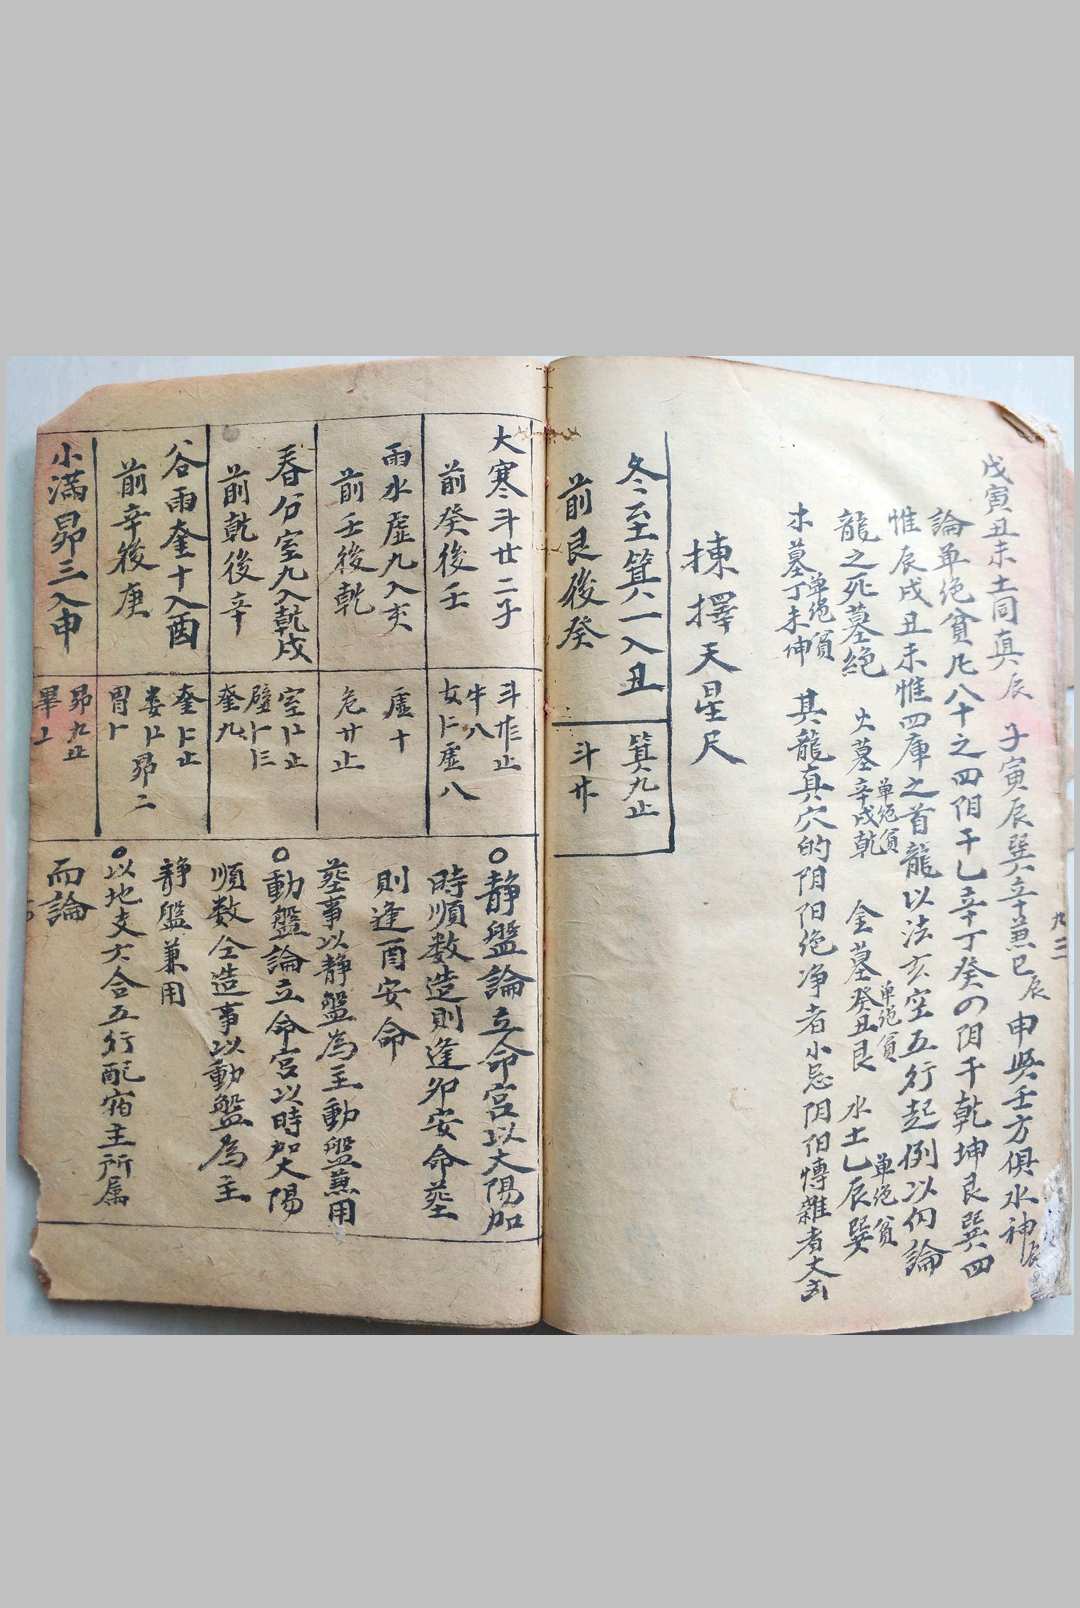 戊寅丑未土同真辰 子寅辰巽辛兼巳辰 申吳壬方俱水神
論单絕貧凡八十之四阴干乙辛丁癸の阴干乾坤艮巽四
惟辰戌丑未惟四庫之首龍以法玄空五行起例以伯論
龍之死墓絕 火墓辛戌乾单絕貧 金墓癸丑艮单絕貧 水土乙辰巽单絕貧
木墓丁未伸单絕貧 其龍真穴的阴阳絕净者小忌阴阳
九三
揀擇天星尺
冬至箕一入丑
前艮後癸
箕九止
斗廿
大寒斗廿二子
前癸後壬
牛八
女仁虛八
雨水虛九入亥
前壬後乾
虛十
危廿止
春分室九入乾戌
前乾後辛
奎九
谷雨奎十入酉
前辛後庚
小滿昴三入申
昴九止
畢上
○靜盤論立命宮以太陽加
時順数造則逢卯安命塟
則逢酉安命
塟事以靜盤為主動盤兼用
○動盤論立命宮以時加太陽
順数仝造事以動盤為主
靜盤兼用
○以地支六合五行配宿主所属
而論